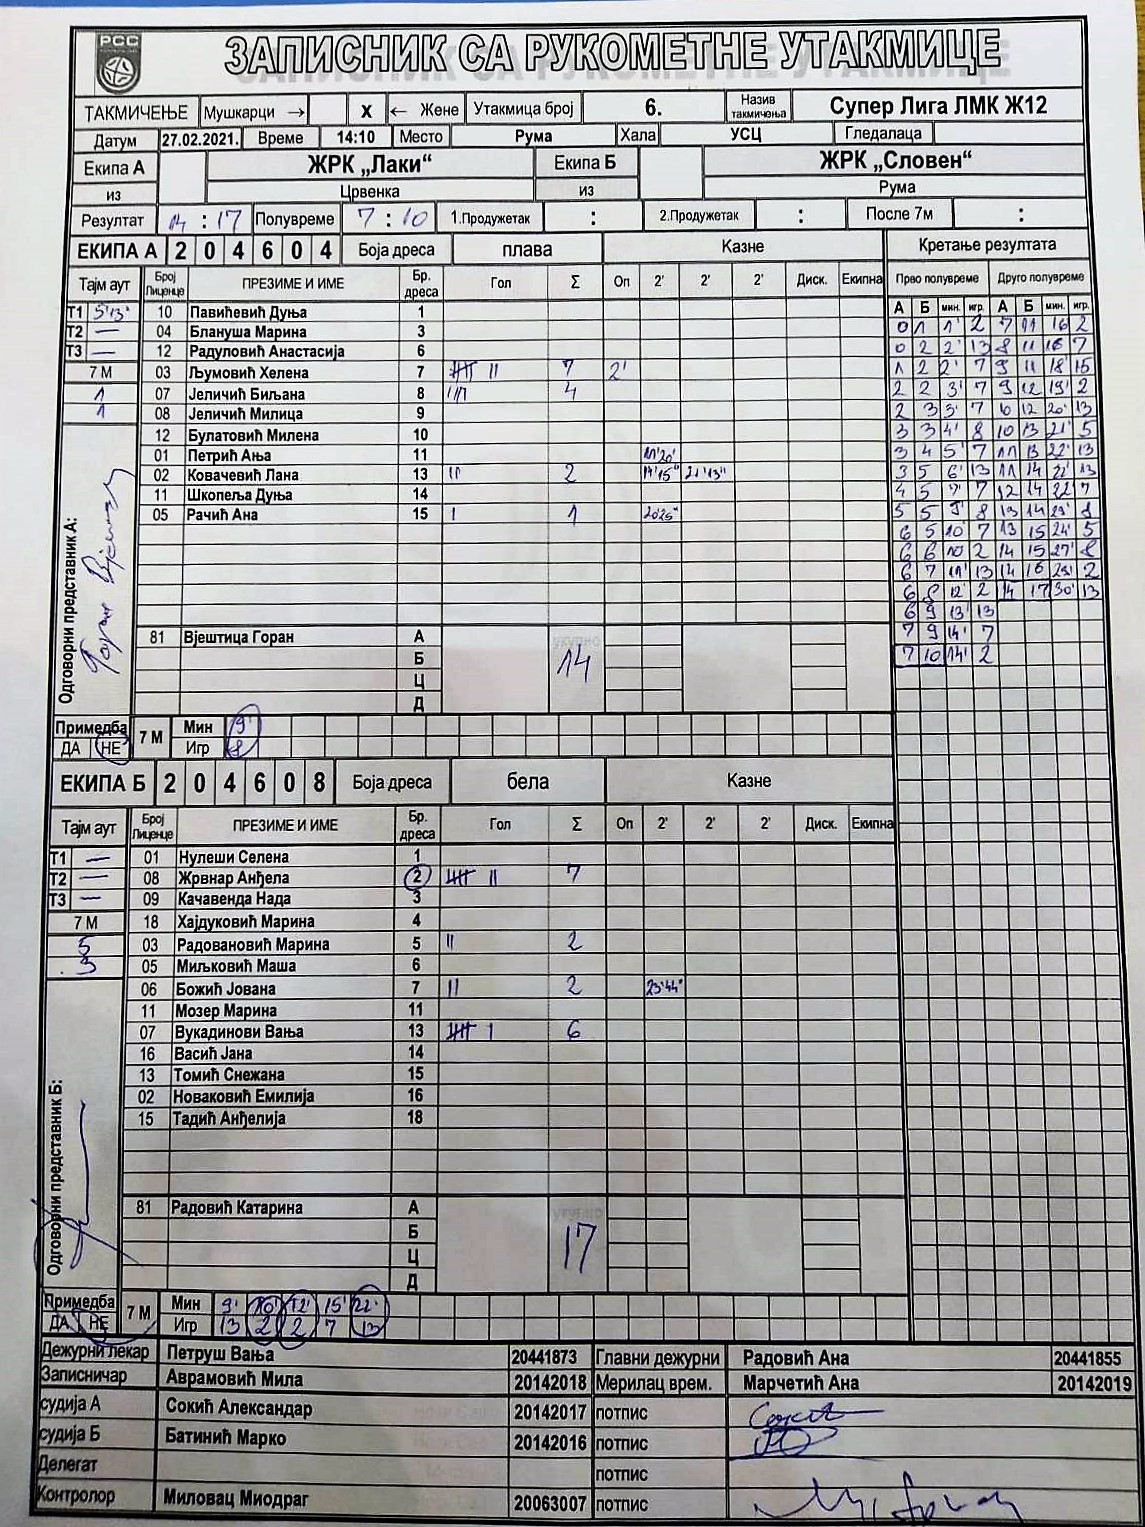 РСС
ЗАПИСНИК СА РУКОМЕТНЕ УТАКМИЦЕ
ТАКМИЧЕЊЕ Мушкарци → X ← Жене Утакмица број 6. Назив такмичења Супер Лига ЛМК Ж12
Датум 27.02.2021. Време 14:10 Место Рума Хала УСЦ Гледалаца
Екипа А ЖРК „Лаки“ Екипа Б ЖРК „Словен“
из Црвенка из Рума
Резултат 14 : 17 Полувреме 7 : 10 1.Продужетак : 2.Продужетак : После 7м :
ЕКИПА А 2 0 4 6 0 4 Боја дреса плава Казне Кретање резултата
Тајм аут Број Лиценце ПРЕЗИМЕ И ИМЕ Бр. дреса Гол Σ Оп 2' 2' 2' Диск. Екипна Прво полувреме Друго полувреме
А Б мин. игр. А Б мин. игр.
Т1 5'13" 10 Павићевић Дуња 1 0 1 1' 2 7 11 16 2
Т2 — 04 Блануша Марина 3 0 2 2' 13 8 11 16 7
Т3 — 12 Радуловић Анастасија 6 1 2 2' 7 9 11 18' 15
7 М 03 Љумовић Хелена 7 7 2' 2 2 3' 7 9 12 19' 2
1 07 Јеличић Биљана 8 4 2 3 3' 7 12 20' 13
1 08 Јеличић Милица 9 3 3 4' 8 10 13 21' 5
12 Булатовић Милена 10 3 4 5' 7 11 13 22' 13
01 Петрић Ања 11 11'20" 3 5 6' 13 11 14 13
02 Ковачевић Лана 13 II 2 14'15" 21'13" 4 5 7' 7 12 14 22 7
11 Шкопеља Дуња 14 5 5 9' 8 13 14 23' 8
05 Рачић Ана 15 I 1 20'25" 6 5 10' 7 13 15 24' 5
6 6 10 2 14 15 27' 8
6 7 11' 13 14 16 2
6 8 12' 2 14 17 30' 13
6 9 13' 13
7 9 14' 7
7 10 14' 2
Одговорни представник А:
81 Вјештица Горан А укупно 14
Б
Ц
Д
Примедба ДА НЕ 7 М Мин 9'
Игр 8
ЕКИПА Б 2 0 4 6 0 8 Боја дреса бела Казне
Тајм аут Број Лиценце ПРЕЗИМЕ И ИМЕ Бр. дреса Гол Σ Оп 2' 2' 2' Диск. Екипна
Т1 — 01 Нулеши Селена 1
Т2 — 08 Жрвнар Анђела 2 7
Т3 — 09 Качавенда Нада 3
7 М 18 Хајдуковић Марина 4
5 03 Радовановић Марина 5 II 2
3 05 Миљковић Маша 6
06 Божић Јована 7 II 2 23'44"
11 Мозер Марина 11
07 Вукадинови Вања 13 6
16 Васић Јана 14
13 Томић Снежана 15
02 Новаковић Емилија 16
15 Тадић Анђелија 18
Одговорни представник Б:
81 Радовић Катарина А укупно 17
Б
Ц
Д
Примедба ДА НЕ 7 М Мин 9' 10' 12' 15' 22'
Игр 13 2 2 7 13
Дежурни лекар Петруш Вања 20441873 Главни дежурни Радовић Ана 20441855
Записничар Аврамовић Мила 20142018 Мерилац врем. Марчетић Ана 20142019
судија А Сокић Александар 20142017 потпис
судија Б Батинић Марко 20142016 потпис
Делегат потпис
Контролор Миловац Миодраг 20063007 потпис